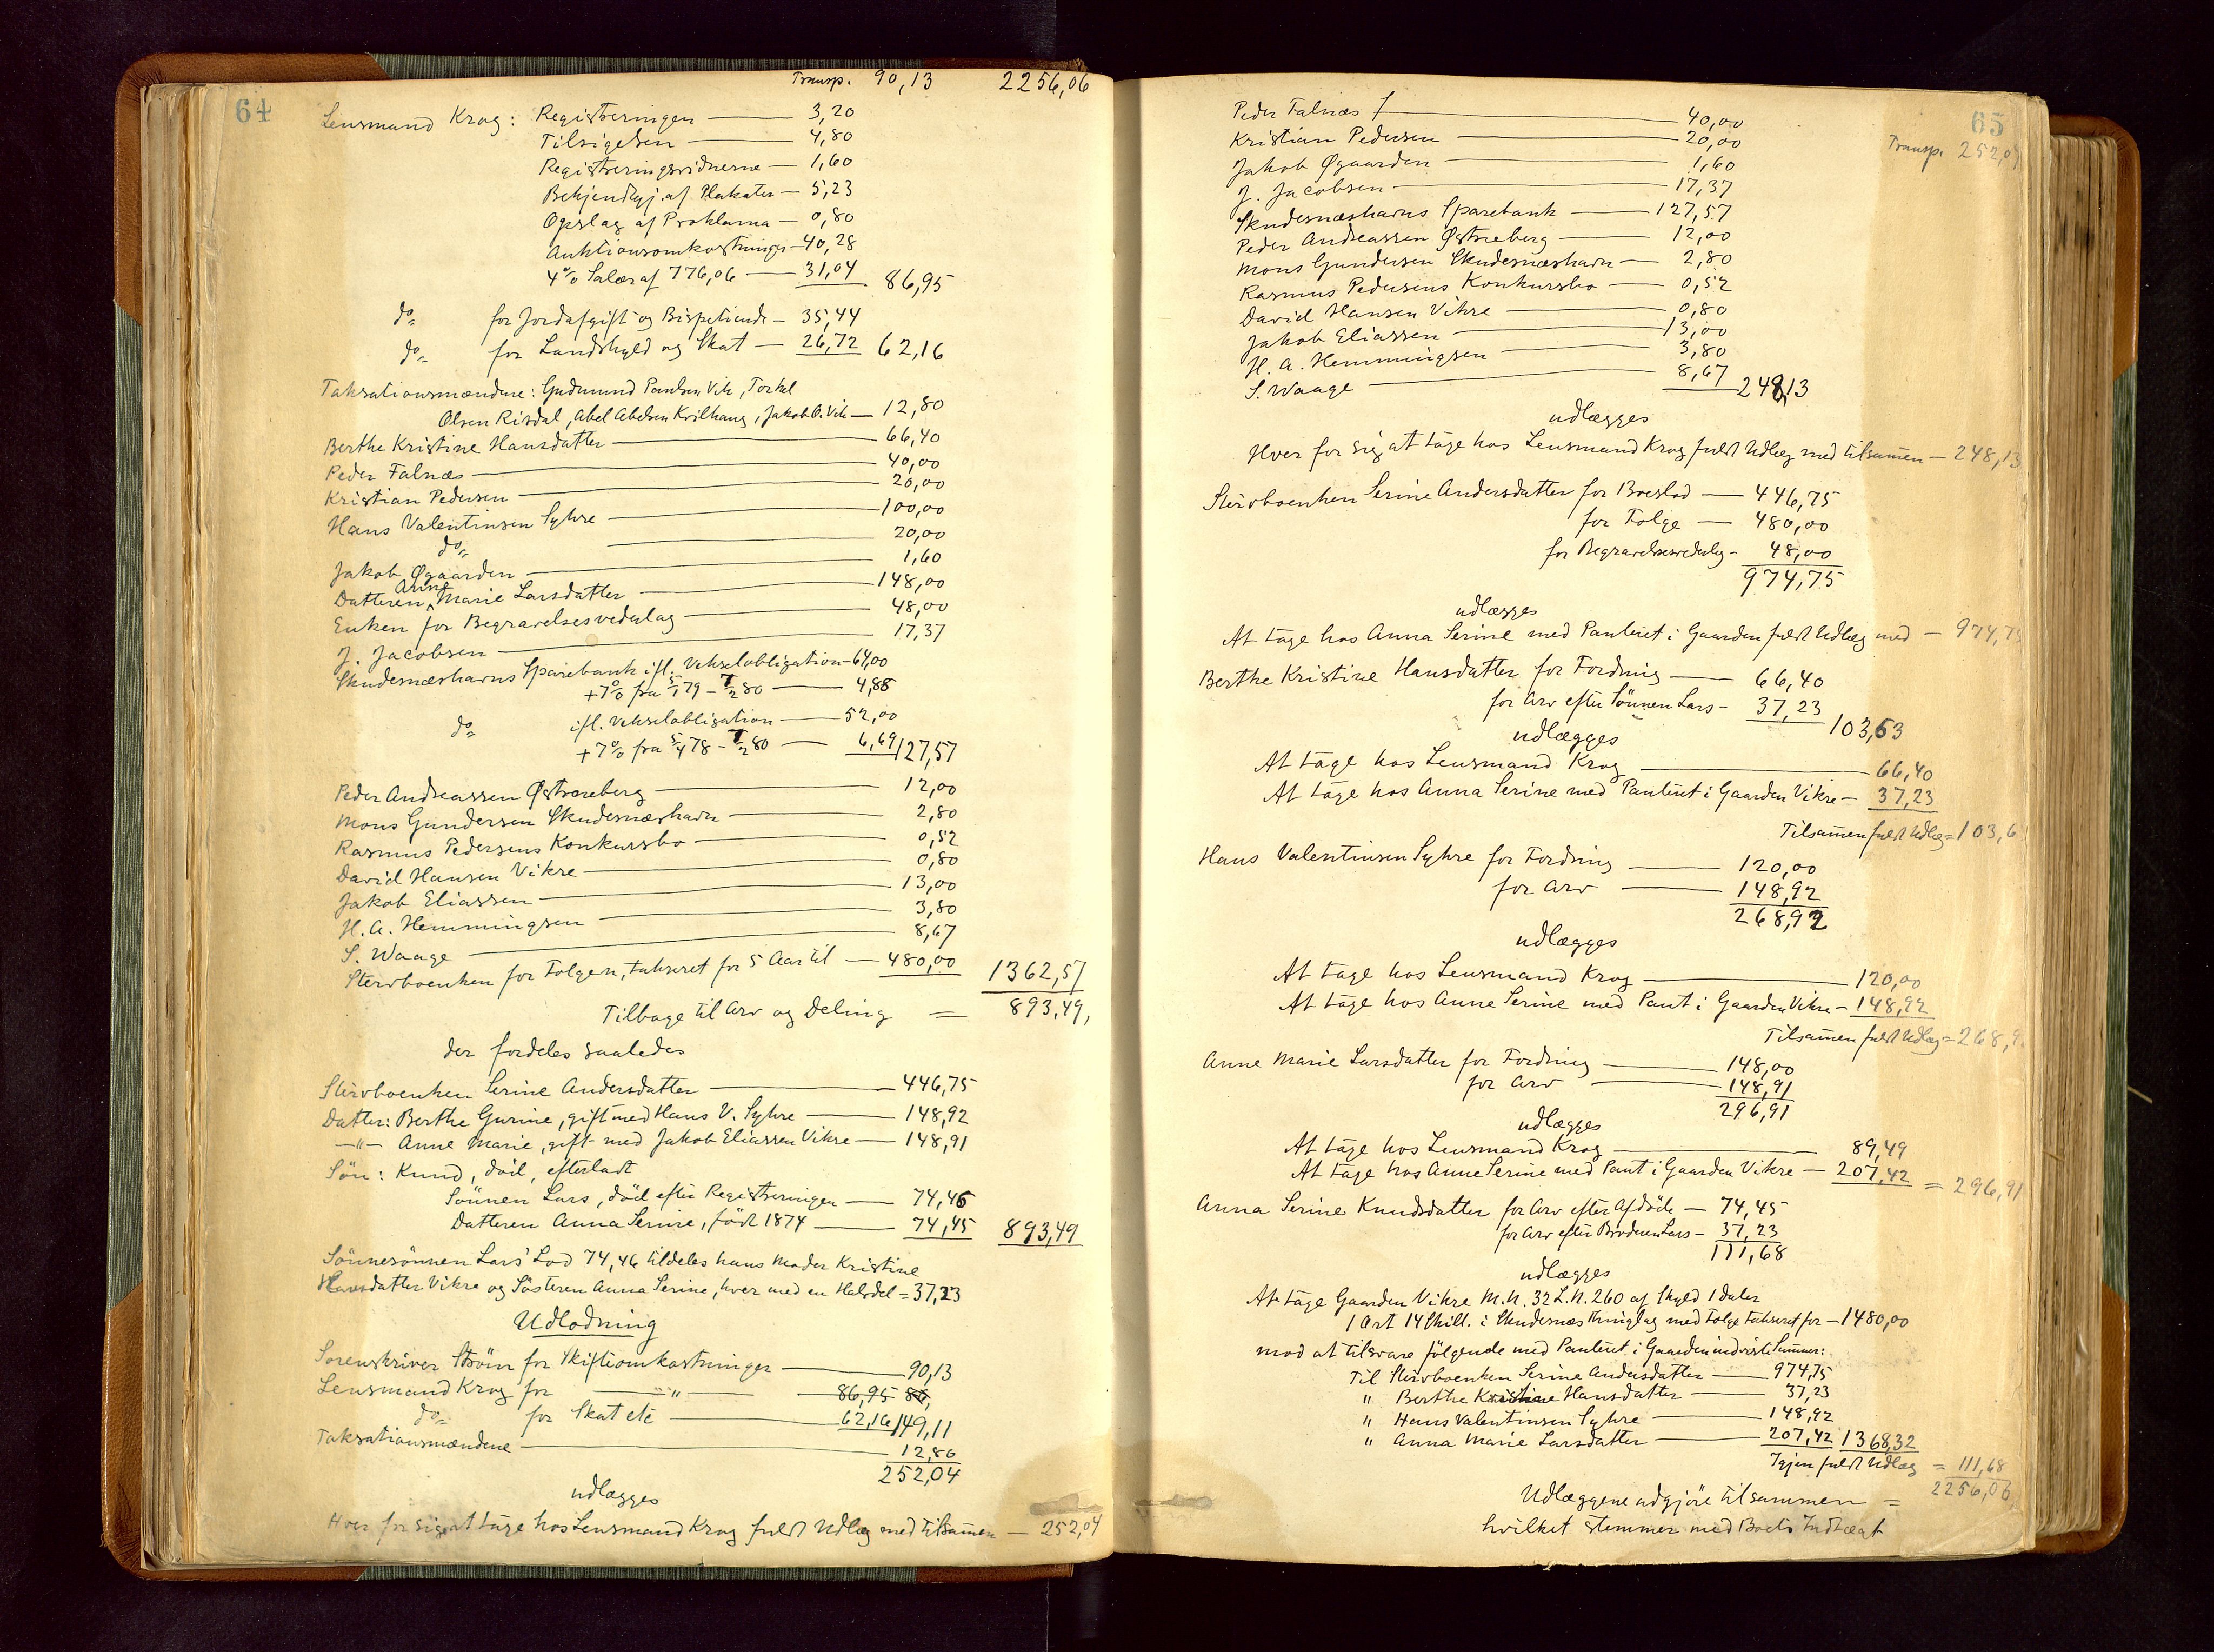 64
Transp. 90,13 2256,06
Lensmand Krog: Registreringen — 3,20
Tilsigelsen — 4,80
Registreringsvidnerne — 1,60
Bekjendtgj. af Plakater — 5,23
Opslag af Proklama — 0,80
Auktionsomkostninger — 40,28
4% Salær af 776,06 — 31,04 86,95
do= for Jordafgift og Bispetiende — 35,44
do= for Landskyld og Skat — 26,72 62,16
Taksationsmændene: Gudmund Paulsen Vik, Torkel
Olsen Risdal, Abel Abelsen Kvilhaug, Jakob O. Vik — 12,80
Berthe Kristine Hansdatter — 66,40
Peder Falnæs — 40,00
Kristian Pedersen — 20,00
Hans Valentinsen Syhre — 100,00
do= — 20,00
Jakob Øgaarden — 1,60
Datteren Anne Marie Larsdatter — 148,00
Enken for Begravelsesvederlag — 48,00
J. Jacobsen — 17,37
Skudesnæshavns Sparebank ifl. Vekselobligation — 64,00
+ 7% fra 5/1 79 - 7/2 80 — 4,88
do= ifl. Vekselobligation — 52,00
+ 7% fra 5/4 78 - 7/2 80 — 6,69 127,57
Peder Andreassen Østreberg — 12,00
Mons Gundersen Skudesnæshavn — 2,80
Rasmus Pedersens Konkursbo — 0,52
David Hansen Vikre — 0,80
Jakob Eliassen — 13,00
H. A. Hemmingsen — 3,80
S. Waage — 8,67
Stervboenken for Folgen, takseret for 5 Aar til — 480,00 1362,57
Tilbage til Arv og Deling = 893,49,
der fordeles saaledes
Stervboenken Serine Andersdatter — 446,75
Datter: Berthe Gurine, gift med Hans V. Syhre — 148,92
—"— Anne Marie, gift med Jakob Eliassen Vikre — 148,91
Søn: Knud, død, efterladt
Sønnen Lars, død efter Registreringen — 74,46
Datteren Anna Serine, født 1874 — 74,45 893,49
Sønnesønnen Lars' Lod 74,46 tildeles hans Moder Kristine
Hansdatter Vikre og Søsteren Anna Serine, hver med en Halvdel = 37,23
Udlodning
Sorenskriver Strøm for Skifteomkostninger — 90,13
Lensmand Krog for —"— 86,95
do= for Skat etc — 62,16 149,11
Taksationsmændene — 12,80
252,04
udlægges
Hver for sig at tage hos Lensmand Krog fuldt Udlæg med tilsammen — 252,04
65
Transp. 252,04
Peder Falnæs — 40,00
Kristian Pedersen — 20,00
Jakob Øgaarden — 1,60
J. Jacobsen — 17,37
Skudesnæshavns Sparebank — 127,57
Peder Andreassen Østreberg — 12,00
Mons Gundersen Skudesnæshavn — 2,80
Rasmus Pedersens Konkursbo — 0,52
David Hansen Vikre — 0,80
Jakob Eliassen — 13,00
H. A. Hemmingsen — 3,80
S. Waage — 8,67 248,13
udlægges
Hver for sig at tage hos Lensmand Krog fuldt Udlæg med tilsammen — 248,13
Stervboenken Serine Andersdatter for Boeslod — 446,75
for Folge — 480,00
for Begravelsesvederlag — 48,00
974,75
udlægges
At tage hos Anna Serine med Panteret i Gaarden fuldt Udlæg med — 974,75
Berthe Kristine Hansdatter for Fordring — 66,40
for Arv efter Sønnen Lars — 37,23 103,63
udlægges
At tage hos Lensmand Krog — 66,40
At tage hos Anna Serine med Panteret i Gaarden Vikre — 37,23
Tilsammen fuldt Udlæg = 103,6
Hans Valentinsen Syhre for Fordring — 120,00
for Arv — 148,92
268,92
udlægges
At tage hos Lensmand Krog — 120,00
At tage hos Anne Serine med Pant i Gaarden Vikre — 148,92
Tilsammen fuldt Udlæg = 268,9
Anne Marie Larsdatter for Fordring — 148,00
for Arv — 148,91
296,91
udlægges
At tage hos Lensmand Krog — 89,49
At tage hos Anne Serine med Pant i Gaarden Vikre — 207,42 = 296,91
Anna Serine Knudsdatter for Arv efter Afdøde — 74,45
for Arv efter Broderen Lars — 37,23
111,68
udlægges
At tage Gaarden Vikre M.N. 32 L.N. 260 af Skyld 1 daler
1 Ort 14 Skill. i Skudesnæs Thinglag med Folge takseret for — 1480,00
mod at tilsvare følgende med Panteret i Gaarden indviste Summer:
Til Stervboenken Serine Andersdatter — 974,75
" Berthe Kristine Hansdatter — 37,23
" Hans Valentinsen Syhre — 148,92
" Anna Marie Larsdatter — 207,42 1368,32
Igjen fuldt Udlæg = 111,68
Udlæggene udgjøre tilsammen = 2256,06
hvilket stemmer med Boets Indtægt